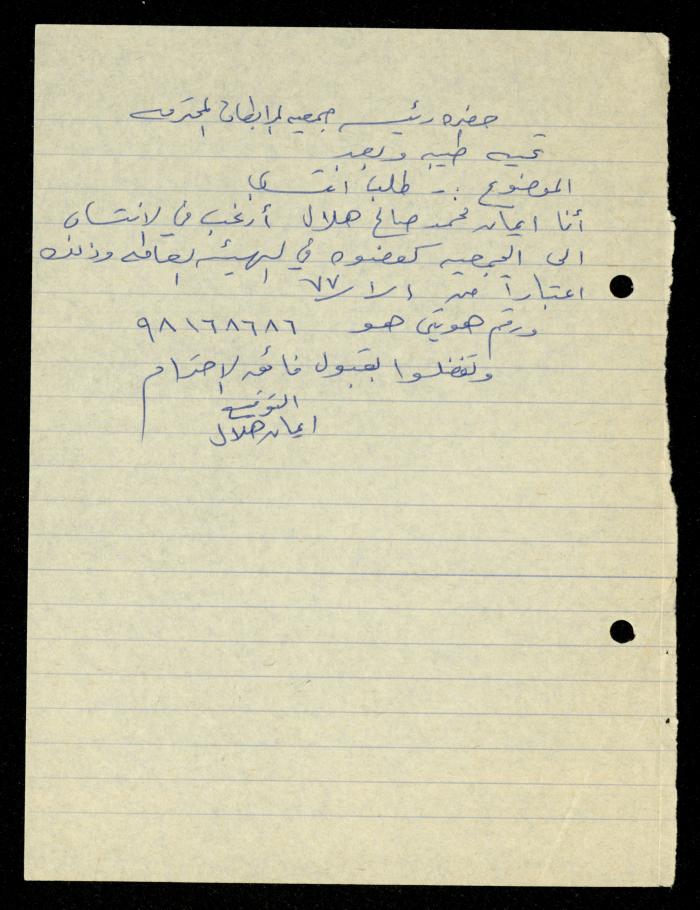 حضرة رئيسة جمعية المرابطات المحترمه
تحيه طيبه وبعد
الموضوع :- طلب انتساب
أنا ايمان محمد صالح هلال أرغب في الانتساب
الى الجمعيه كعضوه في الهيئه العامه وذلك
اعتباراً من ١/١/٧٧
ورقم هويتي هو ٩٨١٦٨٦٨٦
وتفضلوا بقبول فائق الاحترام
التوقيع
ايمان هلال